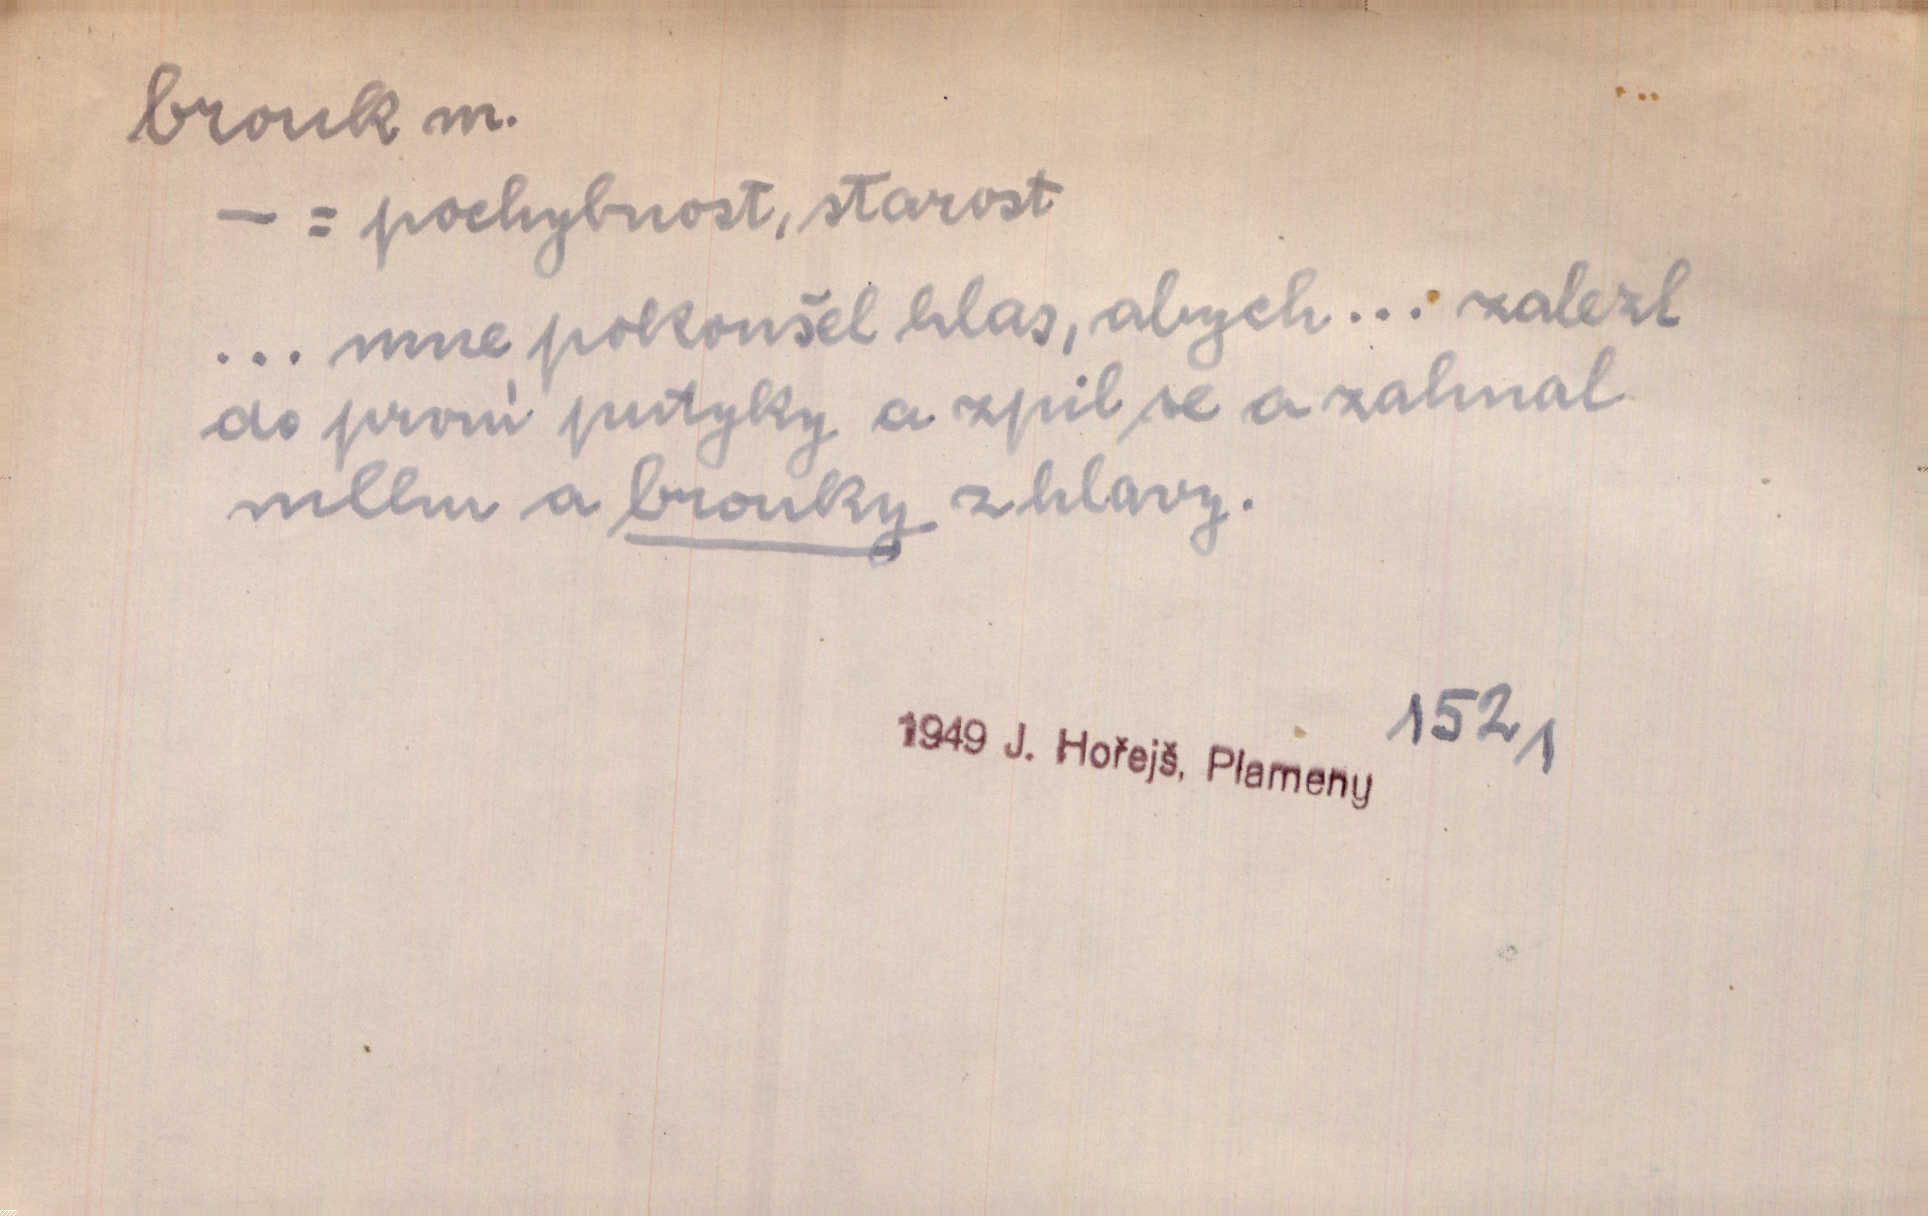 brouk m.
— = pochybnost, starost
... mne pokoušel hlas, abych ... zalezl
do první putyky a zpil se a zahnal
mlhu a brouky z hlavy.
1949 J. Hořejš, Plameny 152,1